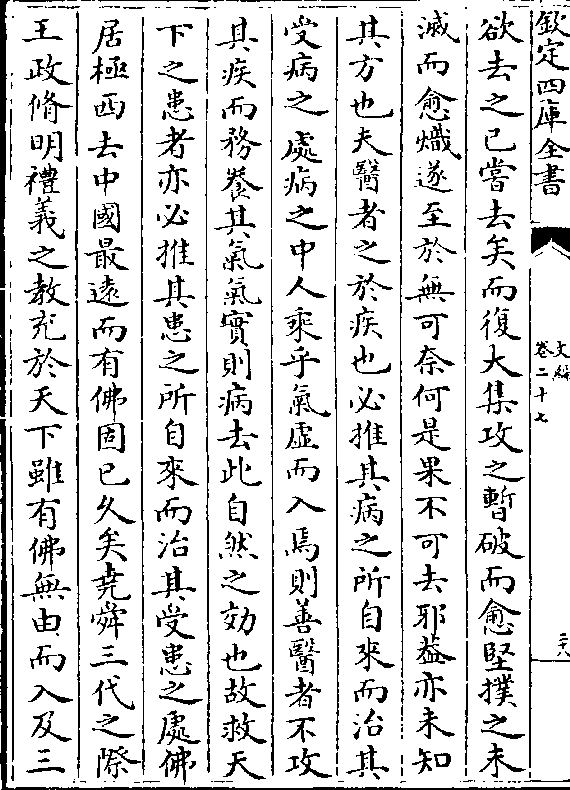 欽定四庫全書
文編
卷二十七
二十八
欲去之已嘗去矣而復大集攻之暫破而愈堅撲之未
滅而愈熾遂至於無可奈何是果不可去邪蓋亦未知
其方也夫醫者之於疾也必推其病之所自來而治其
受病之處病之中人乘乎氣虛而入焉則善醫者不攻
其疾而務養其氣氣實則病去此自然之効也故救天
下之患者亦必推其患之所自來而治其受患之處佛
居極西去中國最遠而有佛固已久矣堯舜三代之際
王政脩明禮義之教充於天下雖有佛無由而入及三